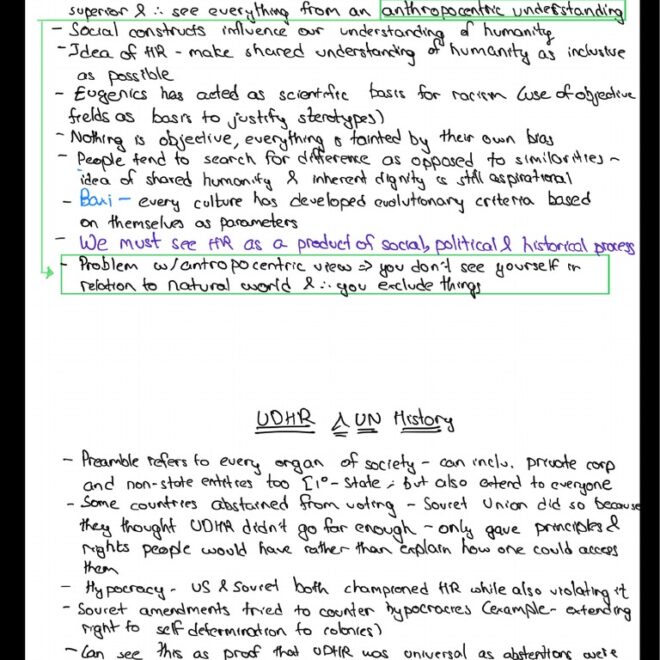 superior & ∴ see everything from an anthropocentric understanding
- Social constructs influence our understanding of humanity
- Idea of HR - make shared understanding of humanity as inclusive
as possible
- Eugenics has acted as scientific basis for racism (use of objective
fields as basis to justify sterotypes)
- Nothing is objective, everything is tainted by their own bias
- People tend to search for difference as opposed to similarities -
idea of shared humanity & inherent dignity is still aspirational
- Baxi - every culture has developed evolutionary criteria based
on themselves as parameters
- We must see HR as a product of social, political & historical process
- Problem w/antropocentric view => you don't see yourself in
relation to natural world & ∴ you exclude things
UDHR & UN History
- Preamble refers to every organ of society - can inclu. private corp
and non-state entities too [1° - State, but also extend to everyone
- Some countries abstained from voting - Soviet Union did so because
they thought UDHR didn't go far enough - only gave principles &
rights people would have rather than explain how one could access
them
- Hypocracy - US & Soviet both championed HR while also violating it
- Soviet amendments tried to counter hypocracies (example - extending
right to self determination to colonies)
- Can see this as proof that UDHR was universal as abstentions were